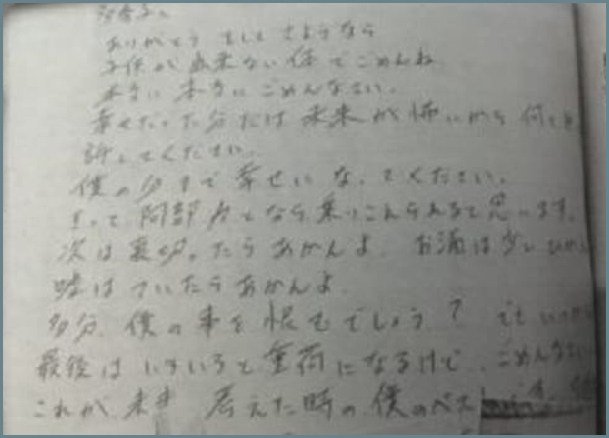 ありがとう そして さようなら
子供が出来ない体でごめんね
本当に本当にごめんなさい。
幸せだった分だけ未来が怖いから 何も
許してください。
僕の分まで幸せになってください。
きっと阿部 となら乗りこえられると思います。
次は裏切ったらあかんよ お酒は少し
嘘はついたらあかんよ
多分、僕の事を恨むでしょう? でも
最後はいろいろと重荷になるけど、ごめんなさい
これが、未来 考えた時の僕のベス